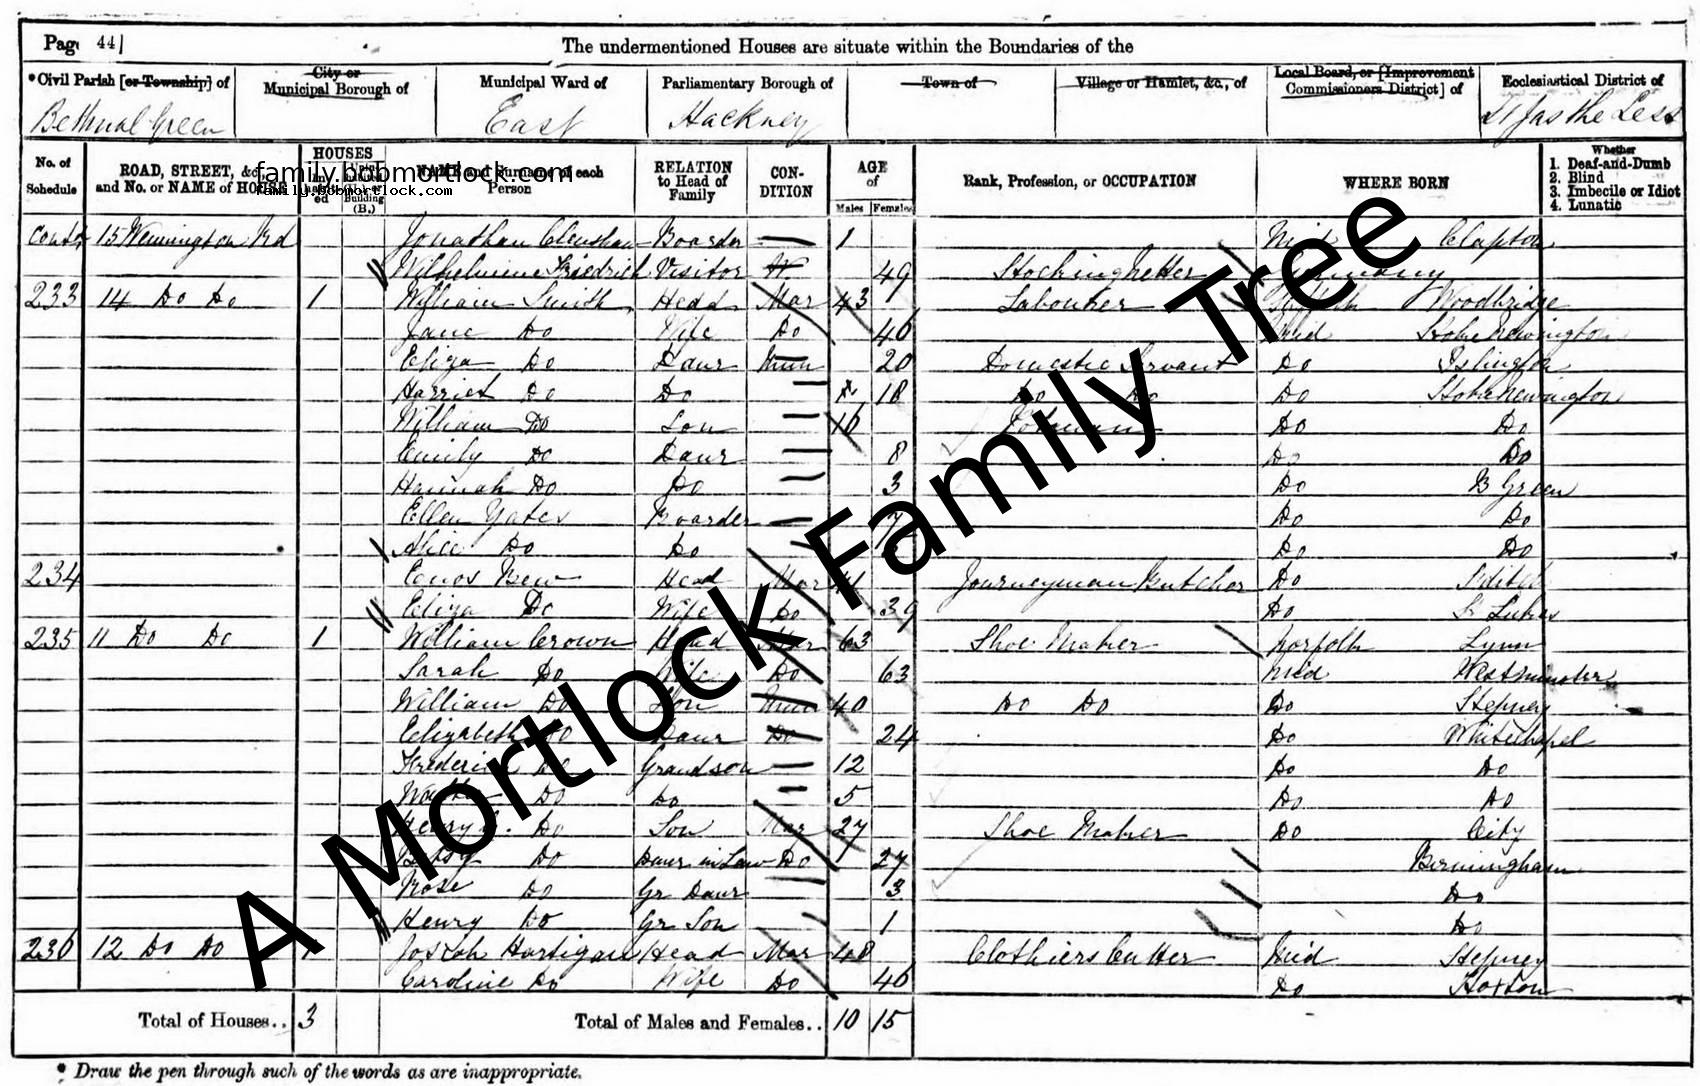 Page 44
The undermentioned Houses are situate within the Boundaries of the
*Civil Parish [or Township] of
City or Municipal Borough of
Municipal Ward of
Parliamentary Borough of
Town of
Village or Hamlet, &c., of
Local Board, or [Improvement Commissioners District] of
Ecclesiastical District of
Bethnal Green East Hackney St Jas the Less
No. of Schedule
ROAD, STREET, &c., and No. or NAME of HOUSE
HOUSES
NAME and Surname of each Person
RELATION to Head of Family
CONDITION
AGE of
Males Females
Rank, Profession, or OCCUPATION
WHERE BORN
Whether
1. Deaf-and-Dumb
2. Blind
3. Imbecile or Idiot
4. Lunatic
family.bobmortlock.com
family.bobmortlock.com
15 Rd Jonathan Boarder 1 Clapton
Wilhelmine Friedrich Visitor W 49 Germany
233 14 Do Do 1 William Smith Head Mar 43 Labourer Woodbridge
Jane Do Wife Do 46 Mid Stoke Newington
Eliza Do Daur Unm 20 Domestic Servant Do Islington
Harriet Do Do 18 Do Do Do Stoke Newington
William Do Son 16 Do Do
Emily Do Daur 8 Do Do
Hannah Do Do 3 Do B Green
Ellen Yates Boarder 7 Do Do
Alice Do Do Do Do
234 Enos New Head Mar Journeyman Butcher Do
Eliza Do Wife Do 39 Do St Lukes
235 11 Do Do 1 William Crown Head Mar 63 Shoe Maker Norfolk Lynn
Sarah Do Wife Do 63 Mid Westminster
William Do Son Unm 40 Do Do Do Stepney
Elizabeth Do Daur Do 24 Do Whitechapel
Frederick Do Grandson 12 Do Do
Walter Do Do 5 Do Do
Henry Do Son Mar 27 Shoe Maker Do City
Betsy Do Daur in Law Do 27 Birmingham
Rose Do Gr Daur 3 Do
Henry Do Gr Son 1 Do
236 12 Do Do 1 Joseph Hartigan Head Mar 48 Clothiers Cutter Mid Stepney
Caroline Do Wife Do 46 Do Hoxton
Total of Houses.. 3 Total of Males and Females.. 10 15
* Draw the pen through such of the words as are inappropriate.
A Mortlock Family Tree